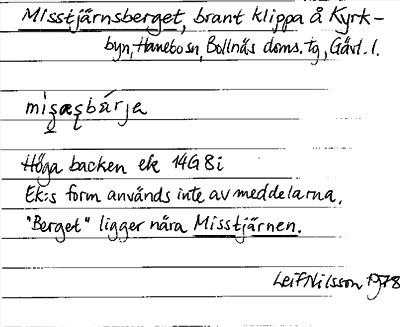 Misstjärnsberget, brant klippa å Kyrk-
byn, Hanebo sn, Bollnäs doms.tg, Gävl. l.
Höga backen ek 14G8i
Ek:s form används inte av meddelarna.
"Berget" ligger nära Misstjärnen.
Leif Nilsson 1978